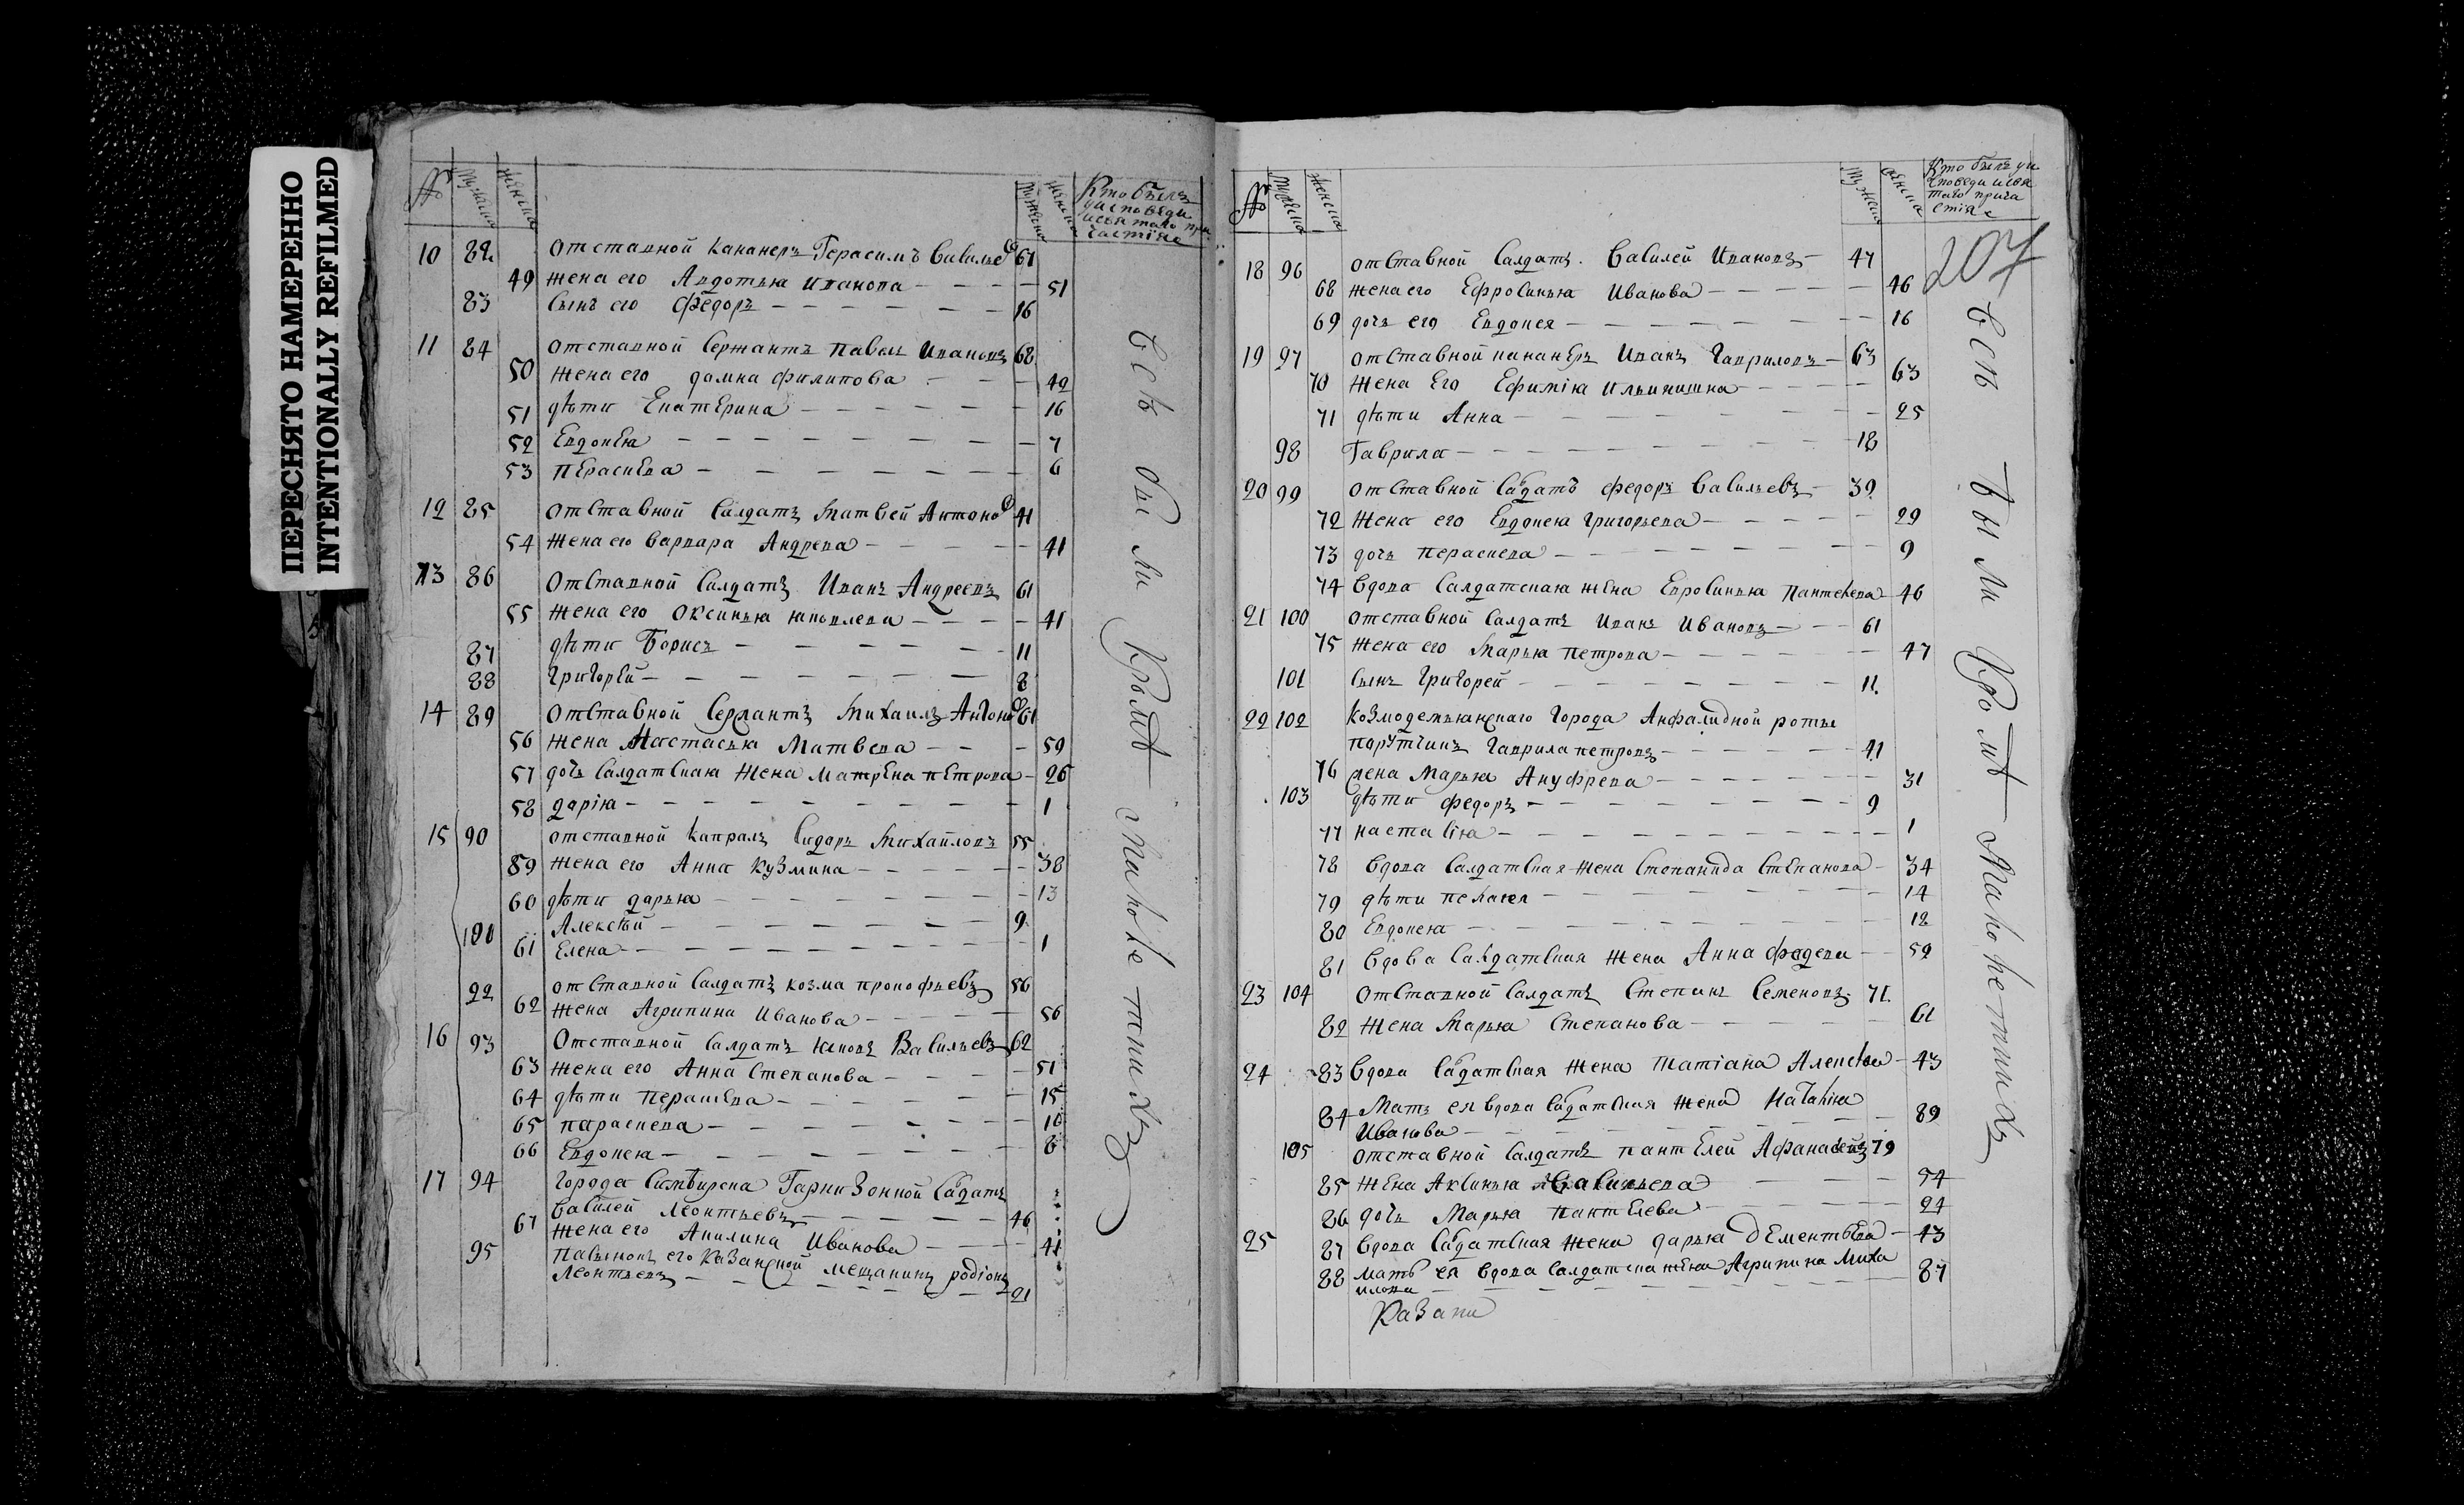 ПЕРЕСНЯТО НАМЕРЕННО
INTENTIONALLY REFILMED
№ мужеска женска мужеска женска Кто былъ
у исповеди
и святаго при
частия
10 82 отставной кананеръ Герасимъ Василье 61
49 жена его Авдотья иванова 51
83 сынъ его федоръ 16
11 84 отставной Сержантъ павелъ Ивановъ 68
50 жена его домна филипова 42
51 дѣти Екатерина 16
52 Евдокея 7
53 перасцева 6
12 85 отставной Салдатъ матвей Антоно 41
54 жена его варвара Андрева 41
13 86 отставной Салдатъ Иванъ Андреевъ 61
55 жена его оксинья яковлева 41
87 дѣти Борисъ 11
88 григорей 8
14 89 отставной Сержантъ михаилъ Антоно 61
56 жена Настасья Матвева 59
57 дочь Салдатская жена матрена петрова 26
58 дарія 1
15 90 отставной капралъ Сидоръ михайловъ 55
89 жена его Анна кузмина 38
60 дѣти дарья 13
Алексѣй 9
61 Елена 1
92 отставной Салдатъ козма прокофьевъ 56
62 жена Агрипина Иванова 56
16 93 Отставной Салдатъ Василъевъ 62
63 жена его Анна Степанова 51
64 дѣти 15
65 параскева 10
66 Евдокея 8
17 94 города Симбирска Гарнизонной Садатъ
василей леонтьевъ 46
67 жена его Акилина Иванова 41
95 пасынокъ его казанской мещанинъ родіонъ
леонтьевъ 21
всѣ были кромѣ никоке таихъ
№ мужеска женска мужеска женска Кто былъ у и
споведи и свя
таго прича
стия
207
18 96 отставной Салдатъ. Василей Ивановъ 47
68 жена его Ефросинья Иванова 46
69 дочь его Евдокея 16
19 97 отставной кананеръ Иванъ Гавриловъ 63
70 жена Его Ефимія ильинишна 63
71 дѣти Анна 25
98 Гаврила 18
20 99 отставной Садатъ федоръ Васильевъ 39
72 жена его Евдокея григорьева 29
73 дочь пераскева 9
74 вдова Салдатская жена Евросинья Пантелева 46
21 100 отставной Салдатъ Иванъ Ивановъ 61
75 жена его марья петрова 47
101 сынъ григорей 11.
22 102 козмодемьянскаго города Анфалидной роты
порутчикъ Гаврила петровъ 41
76 жена марья Ануфрева 31
103 дѣти федоръ 9
77 настасія 1
78 вдова Салдатская жена Степанида Степанова 34
79 дѣти пелагея 14
80 Евдокея 12
81 вдова Салдатская жена Анна фадева 59
23 104 отставной Салдатъ Степанъ Семеновъ 71.
82 жена марья Степанова 61
24 83 вдова Садатская жена татіана Алексѣва 43
84 мать ея вдова Садатская жена Наталия
Иванова 89
105 отставной Салдатъ пантелей Афанасеивъ 79
85 жена Аксинья Васильева 54
86 дочь марья пантелева 24
25 87 вдова Садатская жена дарья дементьева 43
88 мать ея вдова Салдатска жена Агрипина миха
илова 87
казани
всѣ были кромѣ никоке таихъ